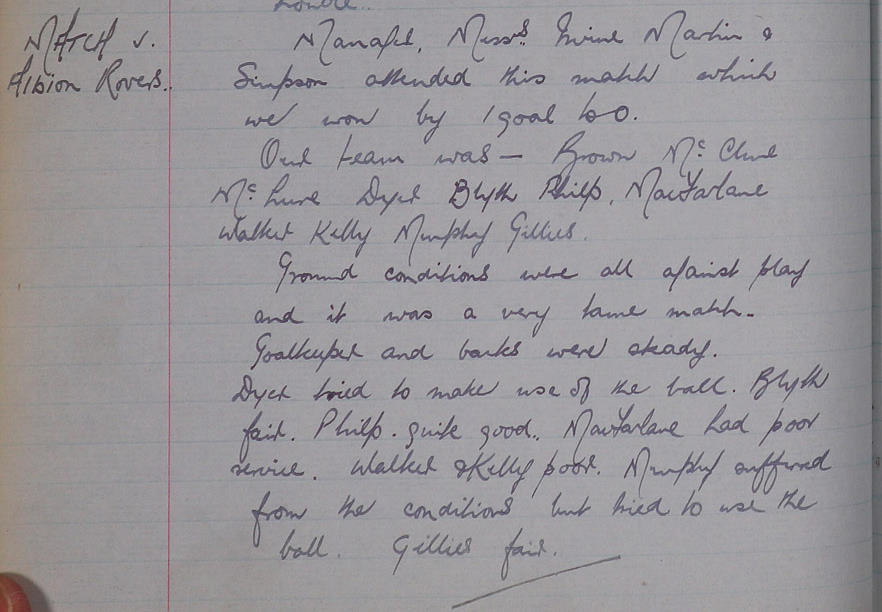 MATCH v.
Albion Rovers..
Manager, Messrs. Irvine Martin &
Simpson attended this match which
we won by 1 goal to 0.
Our team was — Brown Mc Clure
Mc Lure Dyer Blyth Philp, MacFarlane
Walker Kelly Murphy Gillies.
Ground conditions were all against play
and it was a very tame match.
Goalkeeper and backs were steady.
Dyer tried to make use of the ball. Blyth
fair. Philp. quite good.. MacFarlane had poor
service. Walker & Kelly poor. Murphy suffered
from the conditions but tried to use the
ball. Gillies fair.